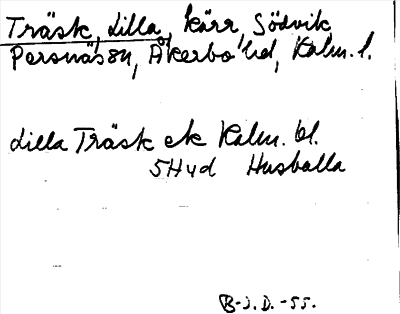 Träsk, Lilla, kärr, Södvik
Persnäs sn, Åkerbo hd, Kalm. l.
Lilla Träsk ek Kalm. bl.
5H vd Husvalla
B-J. D. -55.